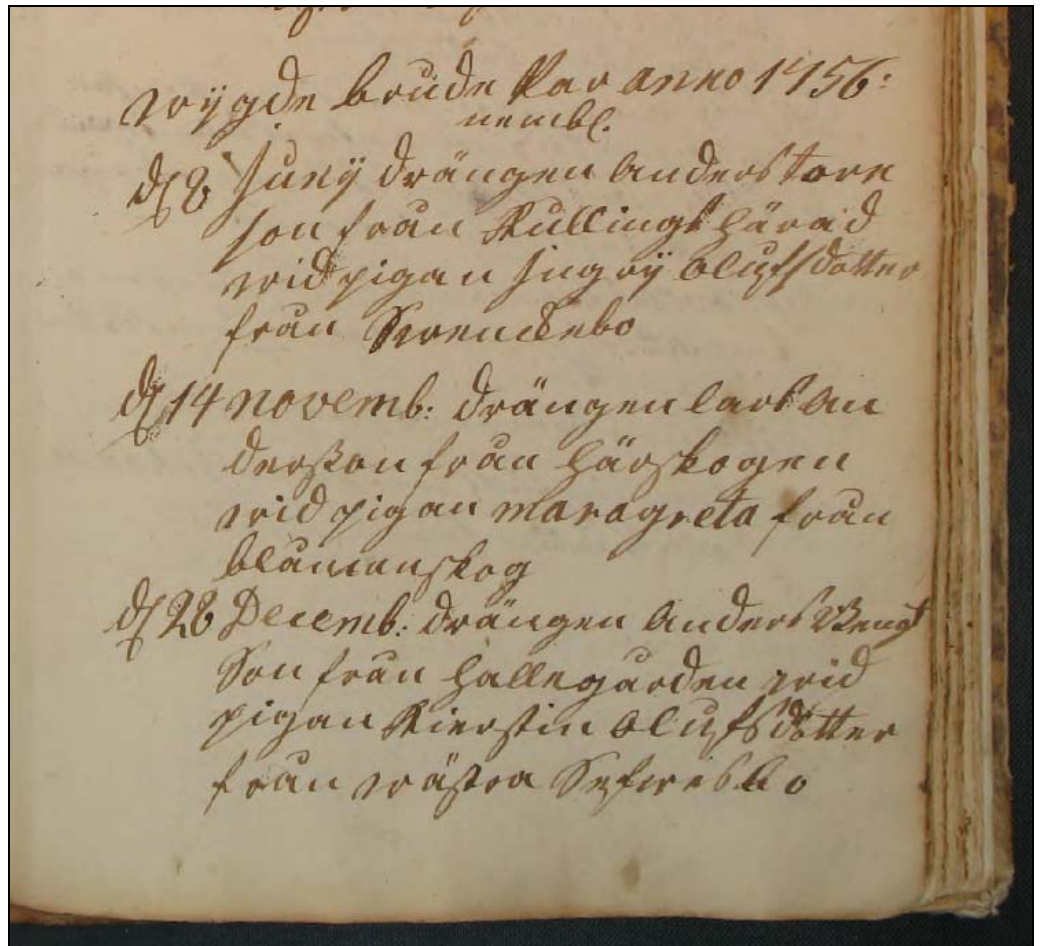 wÿgde brude Par anno 1756:
nembl.
d 8 Junÿ drängen anders tore
son från Kullings härad
wid pigan Ingrÿ olufsdotter
från Swenskebo
d 14 novemb: drängen lars an
dersson från härskogen
wid pigan maragreta från
blamanskog
d 28 Decemb: drängen anders Bengt
Son från hallegården wid
pigan Kierstin olufsdotter
från wästra